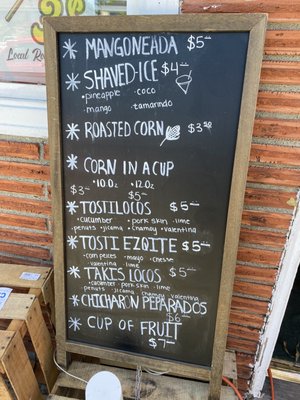 Local
MANGONEADA $5
SHAVED-ICE $4
• pineapple • coco
• mango • tamarindo
ROASTED CORN $3.50
CORN IN A CUP
• 10.oz • 12.oz
$3 $5
TOSTILOCOS $5
• cucumber • pork skin • lime
penuts • jicama • chamoy • valentina
TOSTI EZQITE $5
• corn peices • mayo • cheese
• Valentina • lime
TAKIS LOCOS $5
• cucumber • pork skin • lime
penuts • jicama • chamoy • valentina
CHICHARON PEPARADOS
$6
CUP OF FRUIT
$7